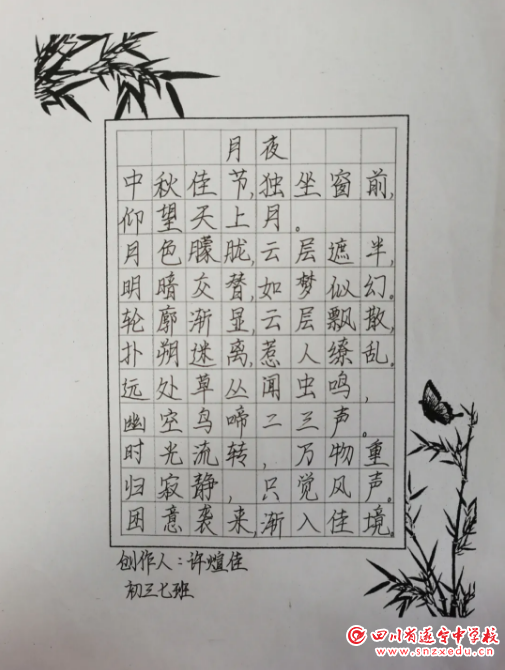 月夜
中秋佳节,独坐窗前,
仰望天上月。
月色朦胧,云层遮半,
明暗交替,如梦似幻。
轮廓渐显,云层飘散,
扑朔迷离,惹人缭乱。
远处草丛闻虫鸣,
幽空鸟啼二三声。
时光流转,万物重
归寂静,只觉风声。
困意袭来,渐入佳境。
创作人:许煊佳
初三七班
四川省遂宁中学校
www.snzx.edu.cn